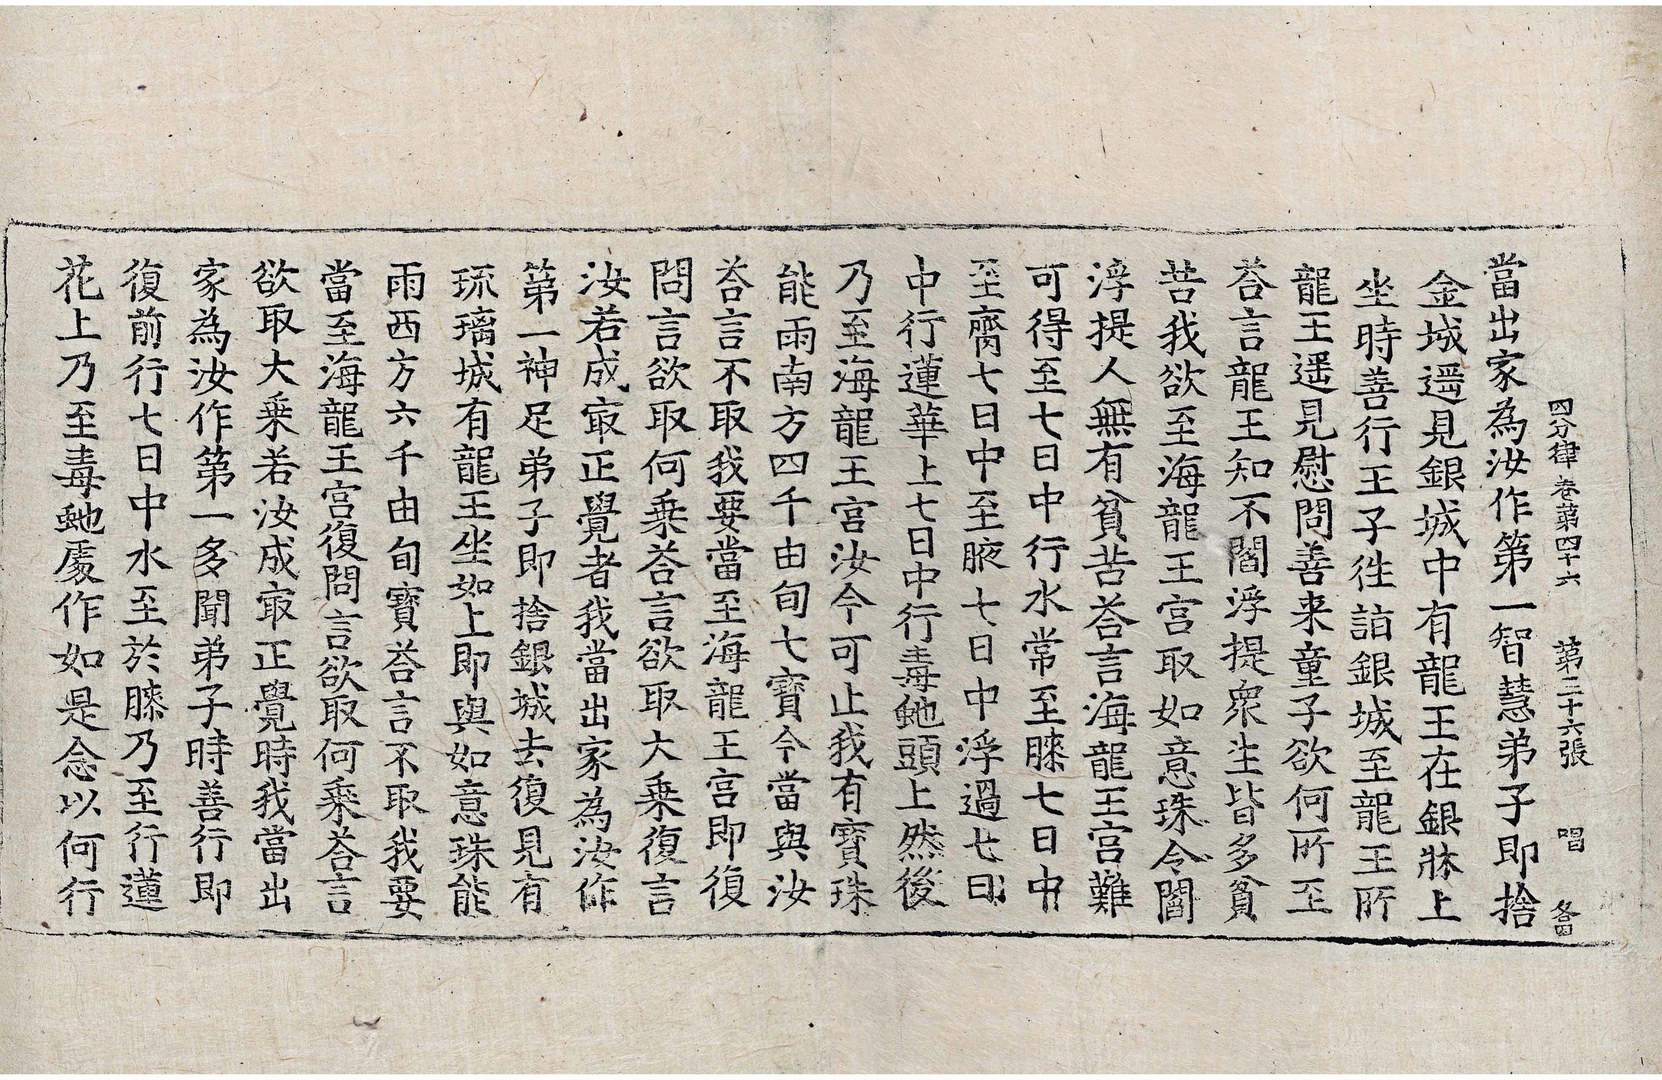 四分律卷第四十六 第二十六張 唱
當出家為汝作第一智慧弟子即捨
金城遥見銀城中有龍王在銀牀上
坐時善行王子徃詣銀城至龍王所
龍王遥見慰問善来童子欲何所至
荅言龍王知不閻浮提衆生皆多貧
苦我欲至海龍王宮取如意珠令閻
浮提人無有貧苦荅言海龍王宮難
可得至七日中行水常至膝七日中
至齊七日中至腋七日中浮過七日
中行蓮華上七日中行毒虵頭上然後
乃至海龍王宮汝今可止我有寶珠
能雨南方四千由旬七寶今當與汝
荅言不取我要當至海龍王宮即復
問言欲取何乗荅言欲取大乗復言
汝若成㝡正覺者我當出家為汝作
第一神足弟子即捨銀城去復見有
琉璃城有龍王坐如上即與如意珠能
雨西方六千由旬寶荅言不取我要
當至海龍王宮復問言欲取何乗荅言
欲取大乗若汝成㝡正覺時我當出
家為汝作第一多聞弟子時善行即
復前行七日中水至於膝乃至行蓮
花上乃至毒虵處作如是念以何行